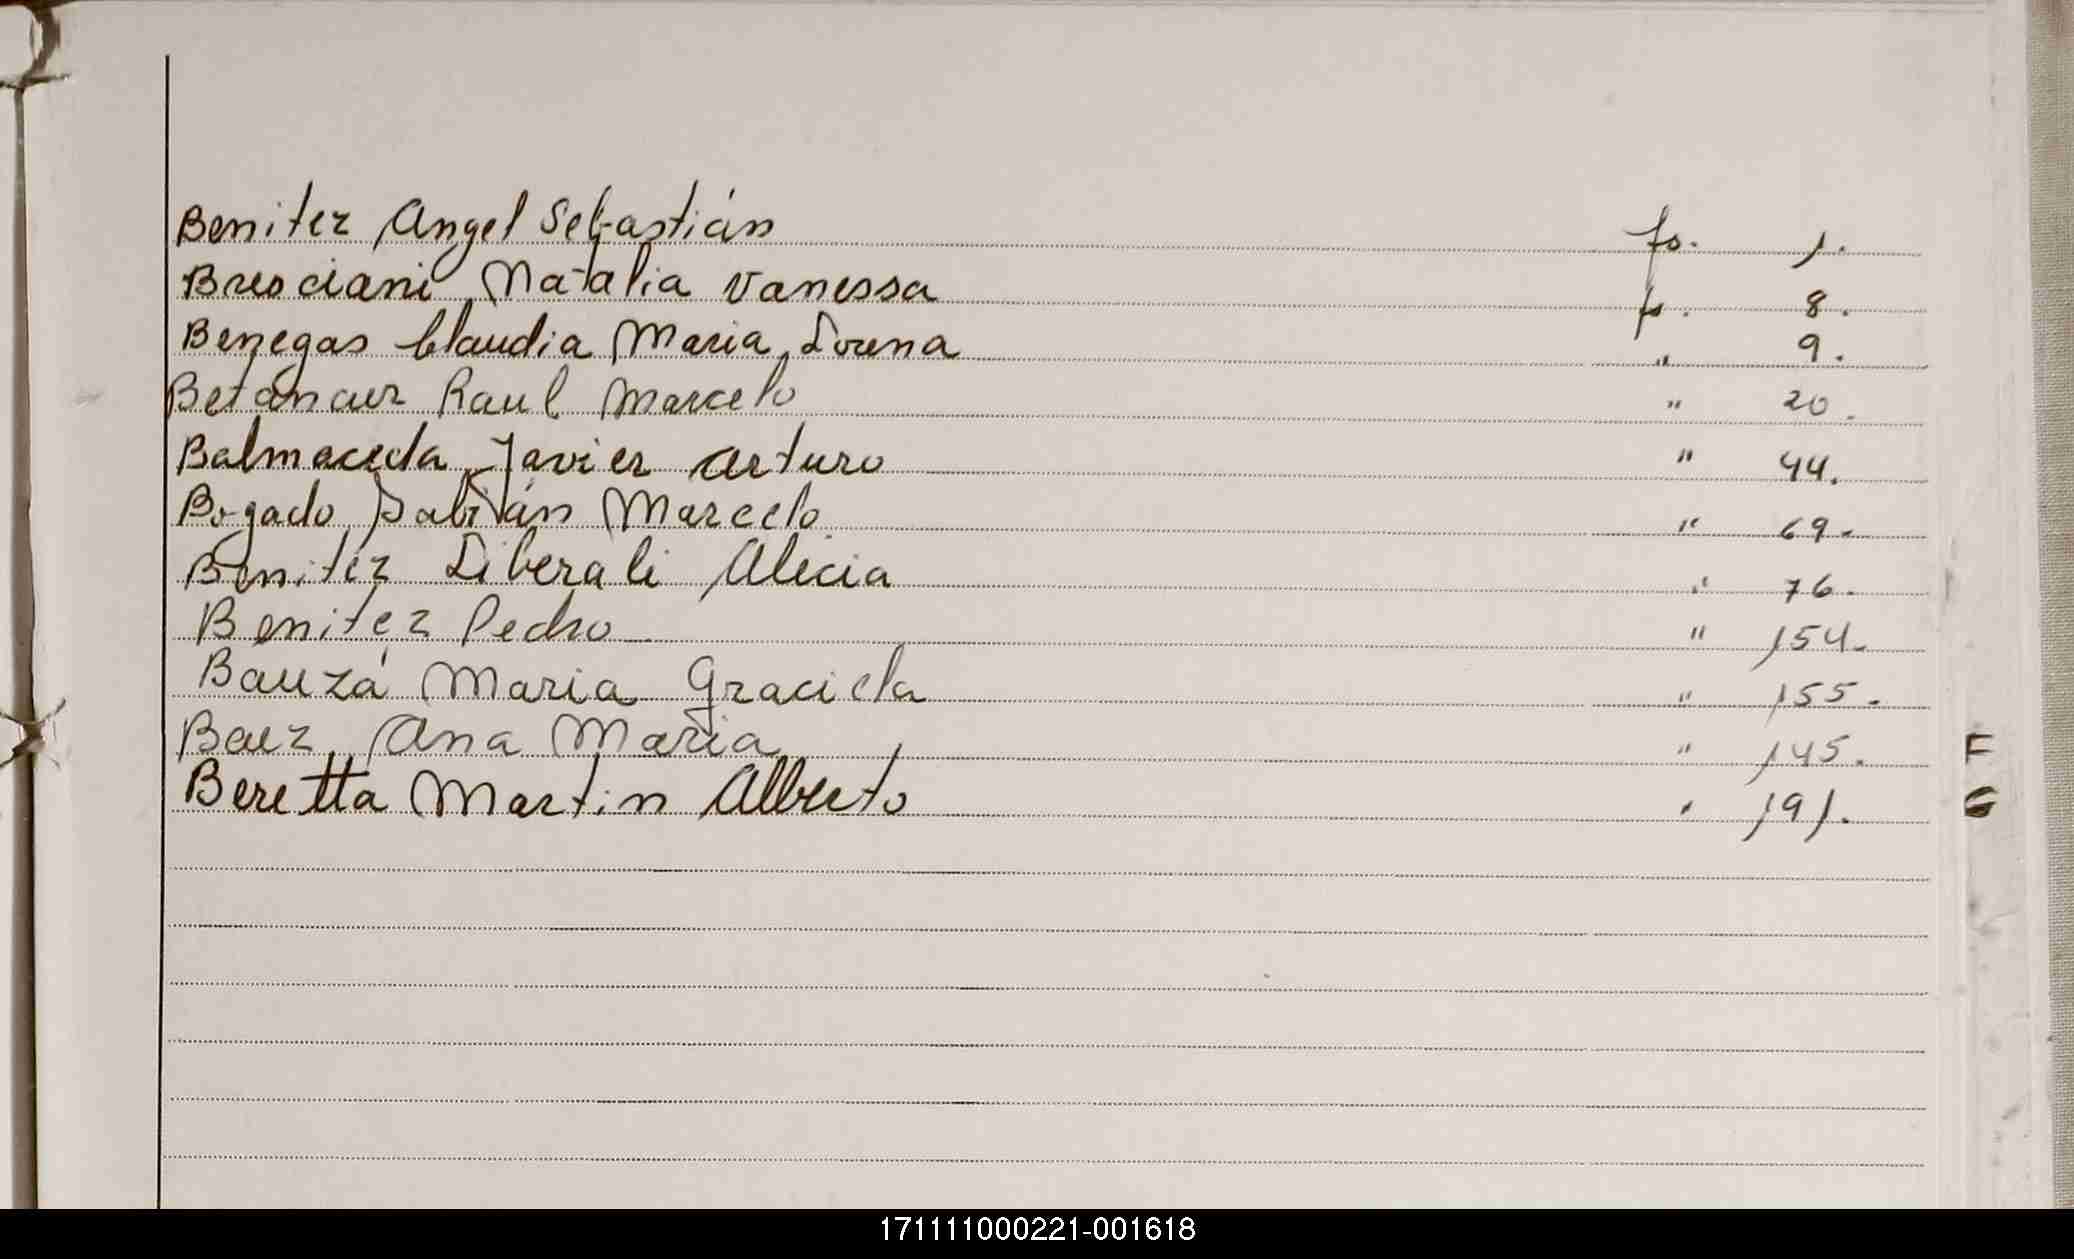 Benitez Angel Sebastián fs. 1.
Bresciani Natalia Vanessa fs. 8.
Benegas Claudia Maria Lorena " 9.
Betancur Raul Marcelo " 20.
Balmaceda Javier Arturo " 44.
Bogado Fabián Marcelo " 69.
Benitez Liberali Alicia " 76.
Benitez Pedro " 154.
Bauzá Maria Graciela " 155.
Baez Ana Maria " 145.
F
Beretta Martin Alberto " 191.
G
171111000221-001618